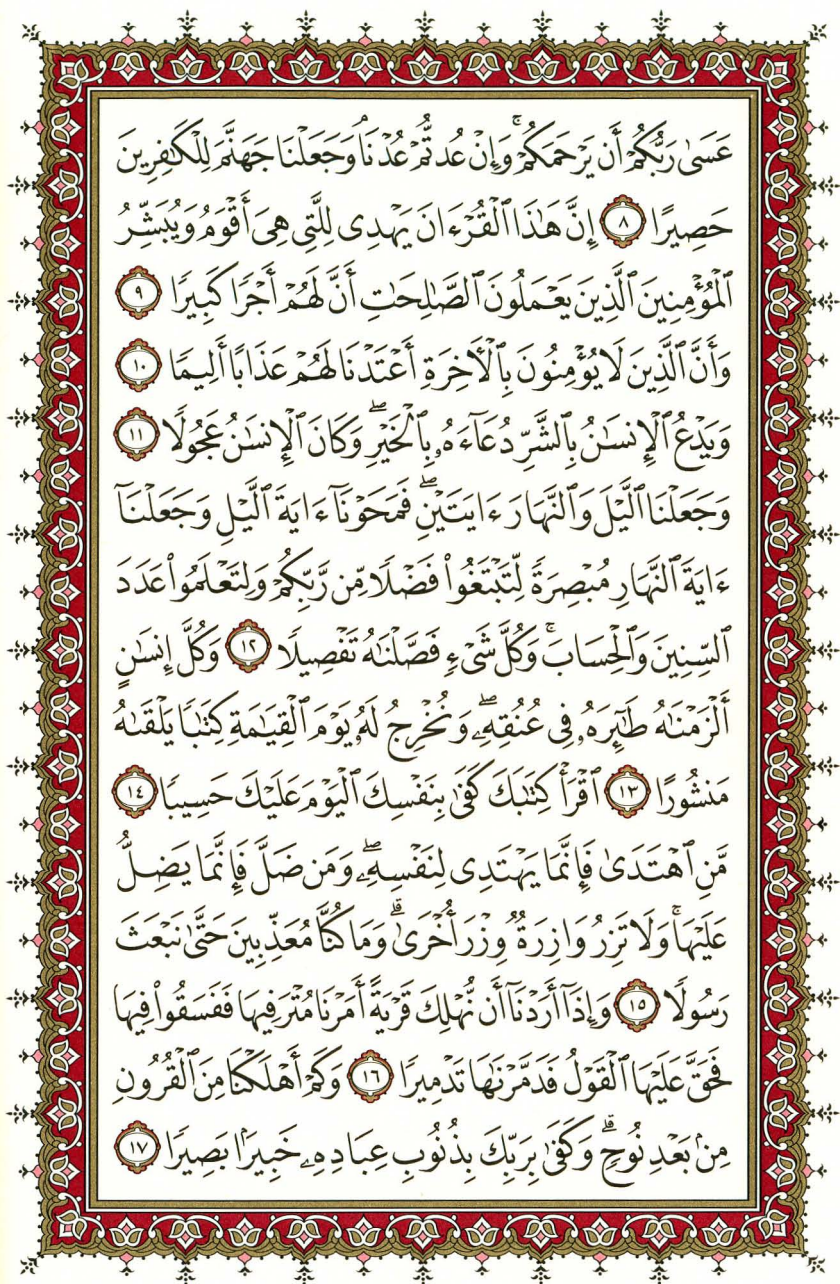 عَسَىٰ رَبُّكُمْ أَن يَرْحَمَكُمْ ۚ وَإِنْ عُدتُّمْ عُدْنَا ۘ وَجَعَلْنَا جَهَنَّمَ لِلْكَـٰفِرِينَ
حَصِيرًا ٨ إِنَّ هَـٰذَا ٱلْقُرْءَانَ يَهْدِى لِلَّتِى هِىَ أَقْوَمُ وَيُبَشِّرُ
ٱلْمُؤْمِنِينَ ٱلَّذِينَ يَعْمَلُونَ ٱلصَّـٰلِحَـٰتِ أَنَّ لَهُمْ أَجْرًا كَبِيرًا ٩
وَأَنَّ ٱلَّذِينَ لَا يُؤْمِنُونَ بِٱلْـَٔاخِرَةِ أَعْتَدْنَا لَهُمْ عَذَابًا أَلِيمًا ١٠
وَيَدْعُ ٱلْإِنسَـٰنُ بِٱلشَّرِّ دُعَآءَهُۥ بِٱلْخَيْرِ ۖ وَكَانَ ٱلْإِنسَـٰنُ عَجُولًا ١١
وَجَعَلْنَا ٱلَّيْلَ وَٱلنَّهَارَ ءَايَتَيْنِ ۖ فَمَحَوْنَآ ءَايَةَ ٱلَّيْلِ وَجَعَلْنَآ
ءَايَةَ ٱلنَّهَارِ مُبْصِرَةً لِّتَبْتَغُوا۟ فَضْلًا مِّن رَّبِّكُمْ وَلِتَعْلَمُوا۟ عَدَدَ
ٱلسِّنِينَ وَٱلْحِسَابَ ۚ وَكُلَّ شَىْءٍ فَصَّلْنَـٰهُ تَفْصِيلًا ١٢ وَكُلَّ إِنسَـٰنٍ
أَلْزَمْنَـٰهُ طَـٰٓئِرَهُۥ فِى عُنُقِهِۦ ۖ وَنُخْرِجُ لَهُۥ يَوْمَ ٱلْقِيَـٰمَةِ كِتَـٰبًا يَلْقَىٰهُ
مَنشُورًا ١٣ ٱقْرَأْ كِتَـٰبَكَ كَفَىٰ بِنَفْسِكَ ٱلْيَوْمَ عَلَيْكَ حَسِيبًا ١٤
مَّنِ ٱهْتَدَىٰ فَإِنَّمَا يَهْتَدِى لِنَفْسِهِۦ ۖ وَمَن ضَلَّ فَإِنَّمَا يَضِلُّ
عَلَيْهَا ۚ وَلَا تَزِرُ وَازِرَةٌ وِزْرَ أُخْرَىٰ ۗ وَمَا كُنَّا مُعَذِّبِينَ حَتَّىٰ نَبْعَثَ
رَسُولًا ١٥ وَإِذَآ أَرَدْنَآ أَن نُّهْلِكَ قَرْيَةً أَمَرْنَا مُتْرَفِيهَا فَفَسَقُوا۟ فِيهَا
فَحَقَّ عَلَيْهَا ٱلْقَوْلُ فَدَمَّرْنَـٰهَا تَدْمِيرًا ١٦ وَكَمْ أَهْلَكْنَا مِنَ ٱلْقُرُونِ
مِنۢ بَعْدِ نُوحٍ ۗ وَكَفَىٰ بِرَبِّكَ بِذُنُوبِ عِبَادِهِۦ خَبِيرًۢا بَصِيرًا ١٧